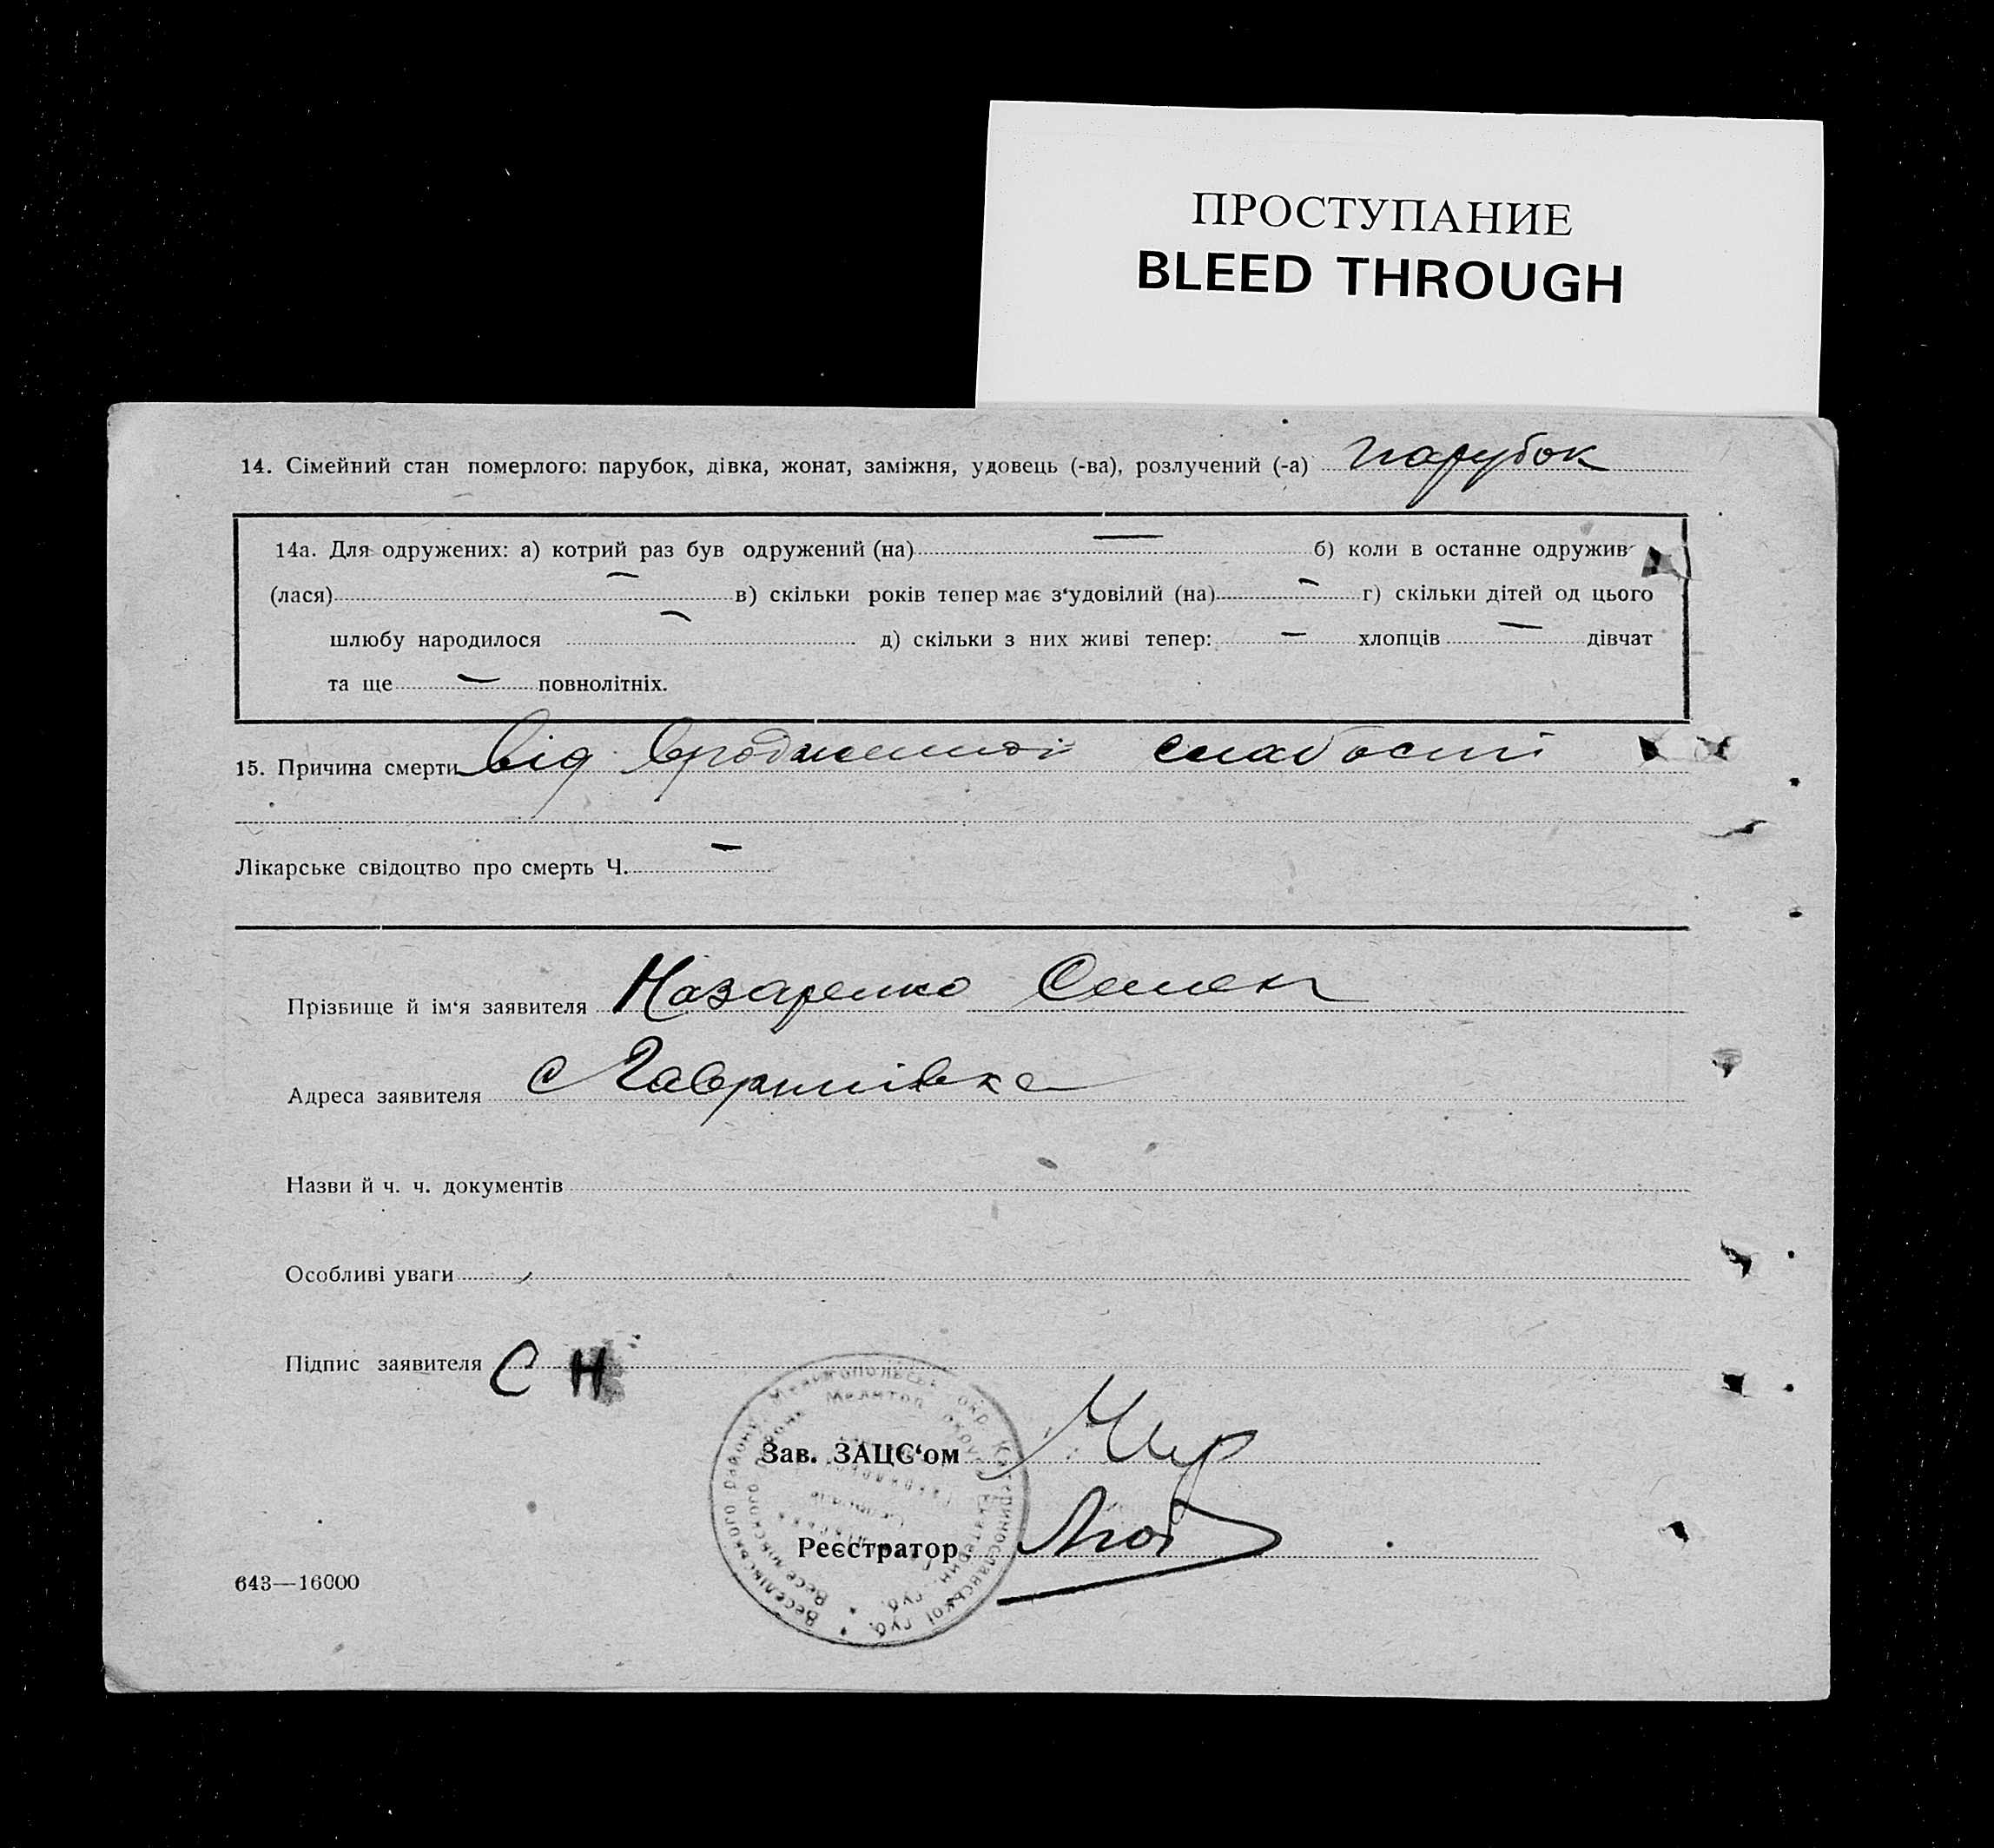 ПРОСТУПАНИЕ
BLEED THROUGH
14. Сімейний стан померлого: парубок, дівка, жонат, заміжня, удовець (-ва), розлучений (-а) парубок
14а. Для одружених: а) котрий раз був одружений (на) — б) коли в останнє одружив
(лася) — в) скільки років тепер має з‘удовілий (на) — г) скільки дітей од цього
шлюбу народилося — д) скільки з них живі тепер: — хлопців — дівчат
та ще — повнолітніх.
15. Причина смерти від врожденної слабости
Лікарське свідоцтво про смерть Ч. —
Прізвище й ім‘я заявителя Назаренко Семен
Адреса заявителя с Гаврилівка
Назви й ч. ч. документів
Особливі уваги
Підпис заявителя С Н
Веселівського району Мелітопольськ. окр. Катеринославської губ.
Веселовского района Мелитоп. округа Екатерин. губ.
Зав. ЗАЦС‘ом
Реєстратор
643—16000